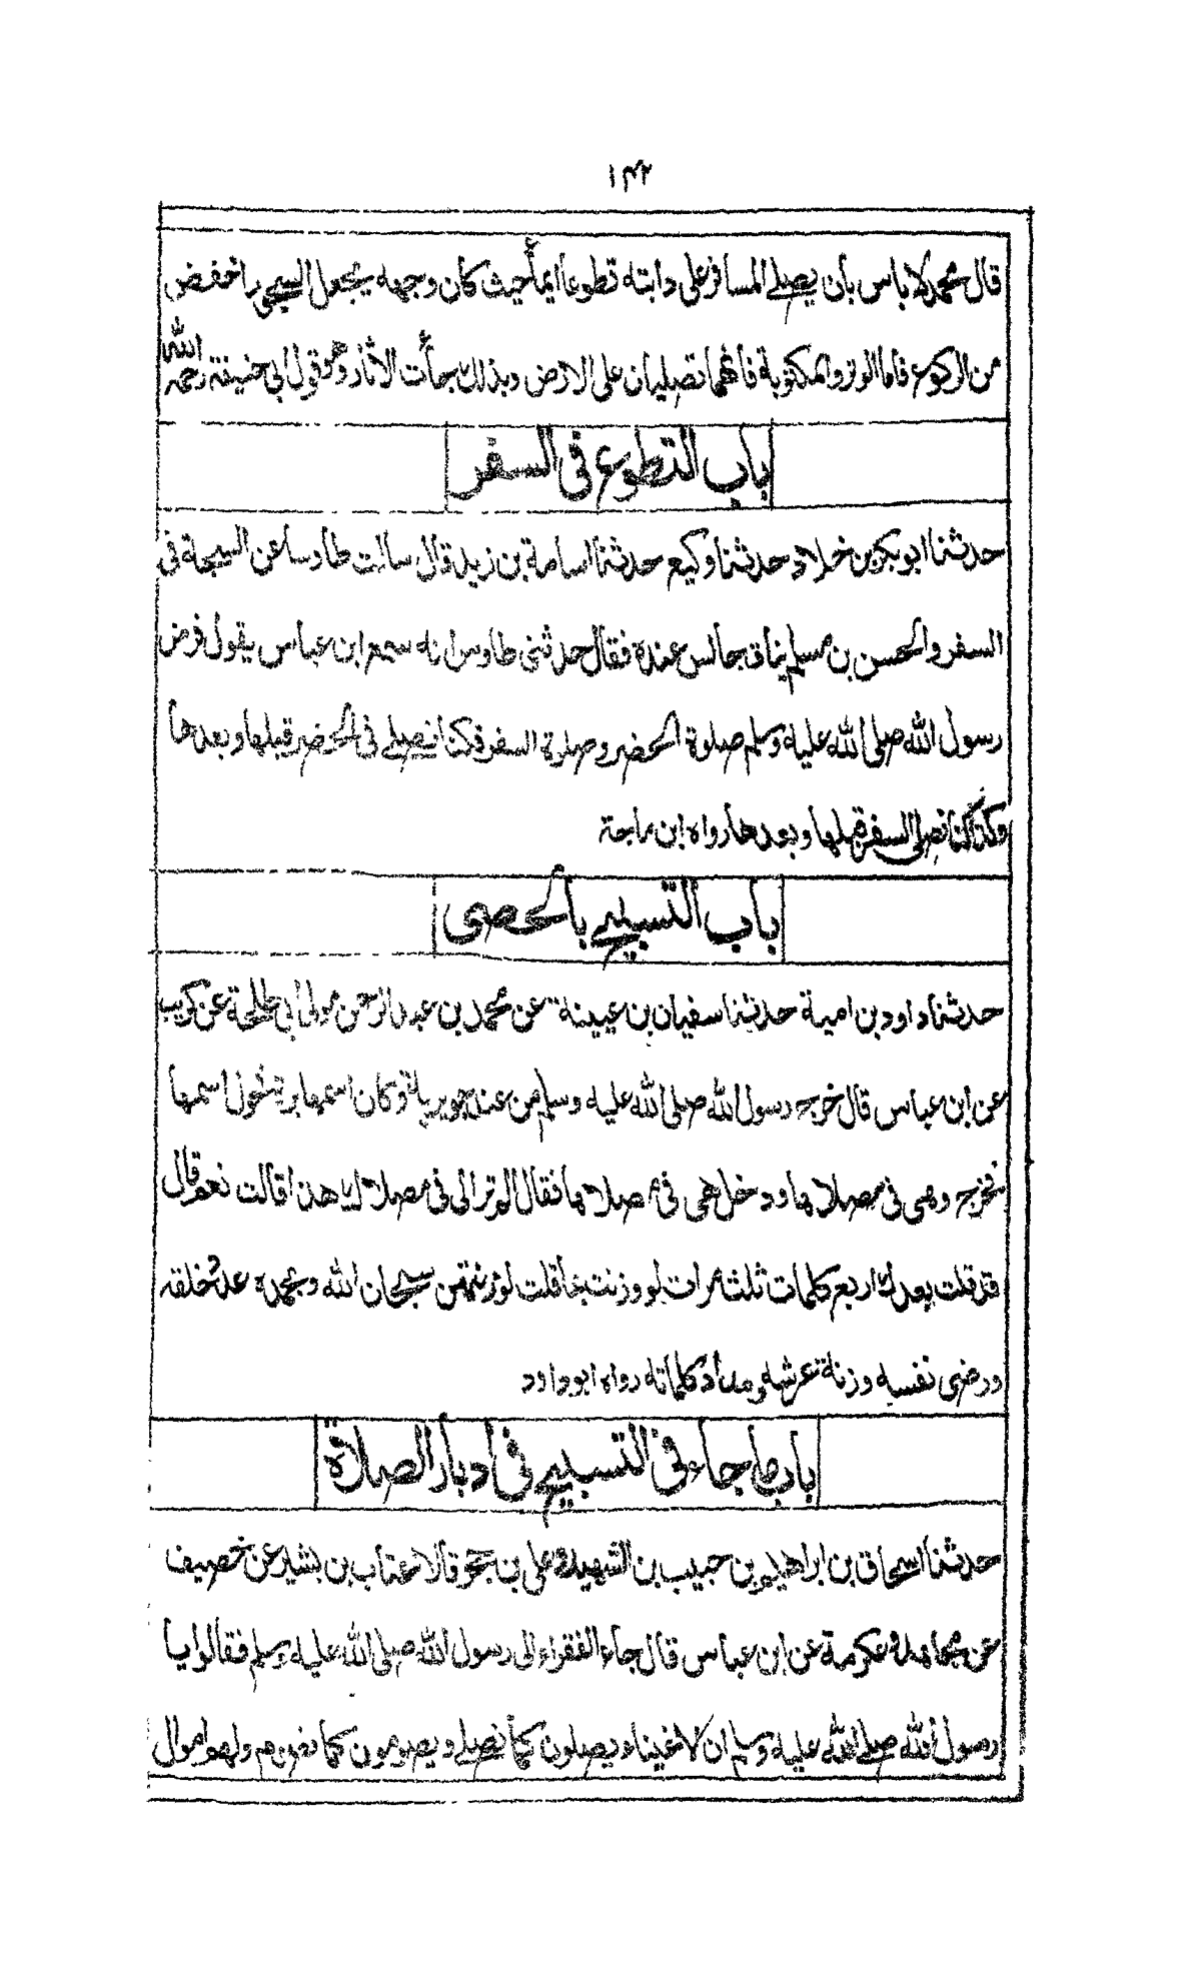 ۱۴۲
قال محمد لا باس بان يصلي المسافر على دابته تطوعا ايماأ حيث كان وجهه يجعل السجود اخفض
من الركوع فاما الوتر والمكتوبة فانهما تصليان على الارض وبذلك جاأت الاثار وهو قول ابى حنيفة رحمه الله
باب التطوع فى السفر
حدثنا ابو بكر بن خلاد حدثنا وكيع حدثنا اسامة بن زيد قال سالت طاوسا عن السبحة فى
السفر والحسن بن مسلم بن يناق جالس عنده فقال حدثنى طاوس انه سمع ابن عباس يقول فرض
رسول الله صلى الله عليه وسلم صلوة الحضر وصلوة السفر فكنا نصلي فى الحضر قبلها وبعدها
وكنا نصلى السفر قبلها وبعدها رواه ابن ماجة
باب التسبيح بالحصى
حدثنا داود بن امية حدثنا سفيان بن عيينة عن محمد بن عبد الرحمن مولى ابي طلحة عن كريب
عن ابن عباس قال خرج رسول الله صلى الله عليه وسلم من عند جويرية وكان اسمها برة فحول اسمها
فخرج وهى فى مصلاها ودخل وهى فى مصلاها فقال الم تزالى فى مصلاك هذا قالت نعم قال
قد قلت بعدك اربع كلمات ثلث مرات لو وزنت بما قلت لوزنتهن سبحان الله وبحمده عدد خلقه
ورضى نفسه وزنة عرشه ومداد كلماته رواه ابو داود
باب ما جاء فى التسبيح فى أدبار الصلاة
حدثنا اسحاق بن ابراهيم بن حبيب بن الشهيد وعلى بن حجر قالا عتاب بن بشير عن خصيف
عن مجاهد وعكرمة عن ابن عباس قال جاء الفقراء الى رسول الله صلى الله عليه وسلم فقالوا يا
رسول الله صلى الله عليه وسلم ان الاغنياء يصلون كما نصلي ويصومون كما نصوم ولهم اموال